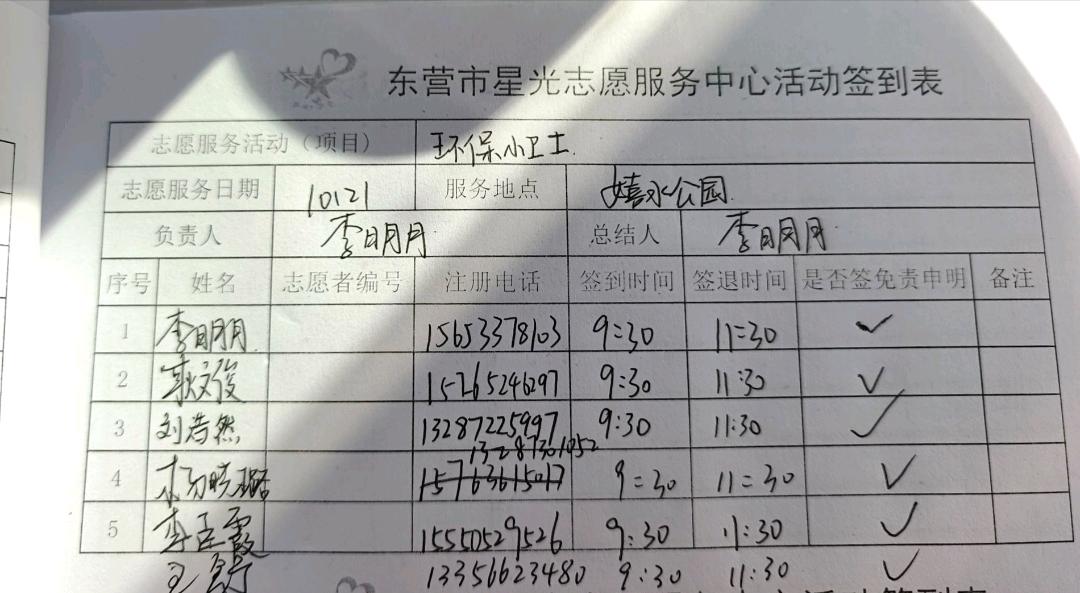 东营市星光志愿服务中心活动签到表
志愿服务活动（项目） 环保小卫士
志愿服务日期 10121 服务地点 嬉水公园
负责人 李明月 总结人 李明月
序号 姓名 志愿者编号 注册电话 签到时间 签退时间 是否签免责申明 备注
1 李明月 15653378103 9:30 11:30 ✓
2 耿文俊 15265246297 9:30 11:30 ✓
3 刘浩然 13287225997 9:30 11:30 ✓
13287301052
4 杨晓璐 15763615017 9:30 11:30 ✓
5 李玉霞 15550529526 9:30 11:30 ✓
王 13356623480 9:30 11:30 ✓